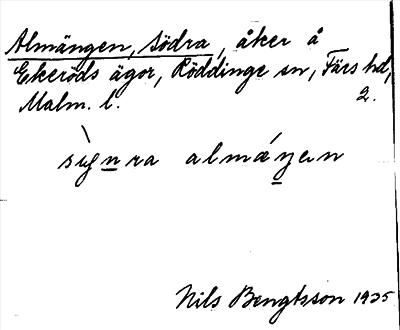 Almängen, södra, åker å
Ekeröds ägor, Röddinge sn, Färs hd,
Malm. l. 2.
almáŋen
Nils Bengtsson 1935